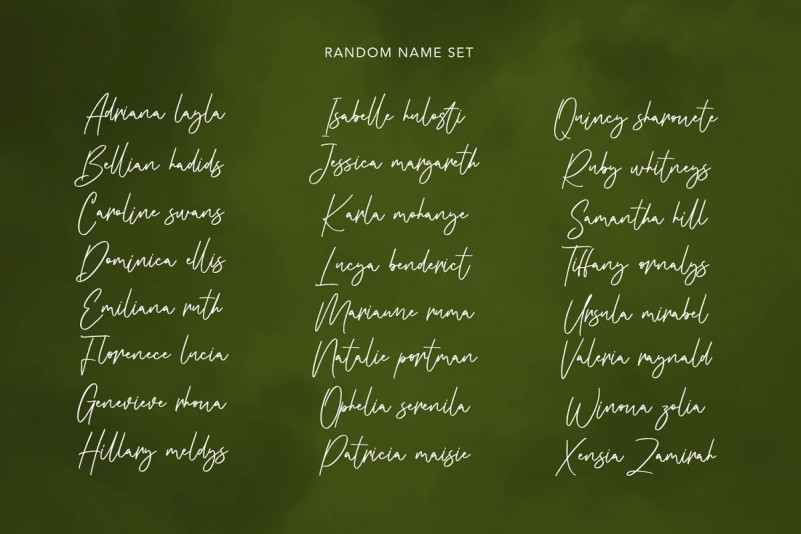 RANDOM NAME SET
Adriana layla
Bellian hadids
Caroline swans
Dominica ellis
Emiliana ruth
Florenece lucia
Genevieve rhoua
Hillary meldys
Isabelle hulosti
Jessica margareth
Karla mohanye
Lucya benderict
Marianne ruma
Natalie portman
Ophelia serenila
Patricia maisie
Quincy sharouete
Ruby whitneys
Samantha hill
Tiffany ornalys
Ursula mirabel
Valeria raynald
Winoua zolia
Xensia Zamirah